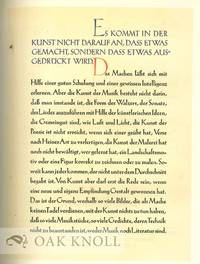 ES KOMMT IN DER
KUNST NICHT DARAUF AN, DASS ETWAS
GEMACHT, SONDERN DASS ETWAS AUS-
GEDRÜCKT WIRD.
Das Machen läßt sich mit
Hilfe einer guten Schulung und einer gewissen Intelligenz
erlernen. Aber die Kunst der Musik besteht nicht darin,
daß man imstande ist, die Form des Walzers, der Sonate,
des Liedes auszufüllen mit Hilfe der künstlerischen Ideen,
die Gemeingut sind, wie Luft und Licht, die Kunst der
Poesie ist nicht erreicht, wenn sich einer geübt hat, Verse
nach Heines Art zu verfertigen, die Kunst der Malerei hat
noch nicht bewältigt, wer gelernt hat, ein Landschaftsmo-
tiv oder eine Figur korrekt zu zeichnen oder zu malen. So-
weit kann jeder kommen, der nicht unter dem Durchschnitt
begabt ist. Von Kunst aber darf erst die Rede sein, wenn
eine neue und eigene Empfindung Gestalt gewonnen hat.
Das ist der Grund, weshalb so viele Bilder, die als Mache
keinen Tadel verdienen, mit der Kunst nichts zu tun haben,
daß so viele Musikstücke, so viele Gedichte, deren Technik
nicht zu beanstanden ist, weder Musik noch Literatur sind.
© OAK KNOLL